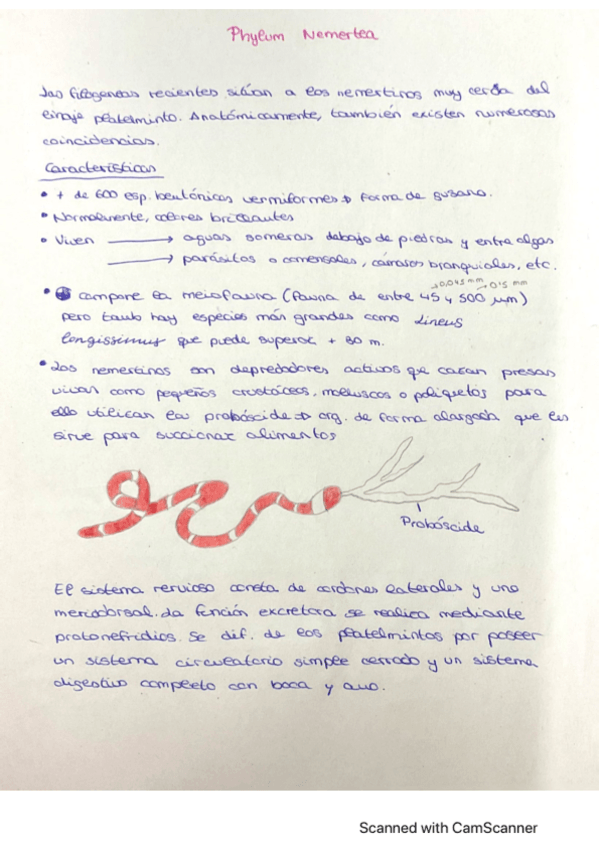 Phylum Nemertea
Las filogeneas recientes sitúan a los nemertinos muy cerca del
linaje platelminto. Anatómicamente, también existen numerosas
coincidencias.
Características
• + de 600 esp. bentónicas vermiformes → forma de gusano.
• Normalmente, colores brillantes
• Viven → aguas someras debajo de piedras y entre algas
→ parásitos o comensales, branquiales, etc.
→0,045 mm →0'5 mm
• campone la meiofauna (fauna de entre 45 y 500 µm)
pero tamb hay especies más grandes como Lineus
longissimus que puede superar + 30 m.
• Los nemertinos son depredadores activos que cazan presas
vivas como pequeños crustáceos, moluscos o poliquetos para
ello utilizan la probóscide → org. de forma alargada que les
sirve para succionar alimentos
Probóscide
El sistema nervioso consta de cordones laterales y uno
mediodorsal. La función excretora se realiza mediante
protonefridios. Se dif. de los platelmintos por poseer
un sistema circulatorio simple cerrado y un sistema
digestivo completo con boca y ano.
Scanned with CamScanner